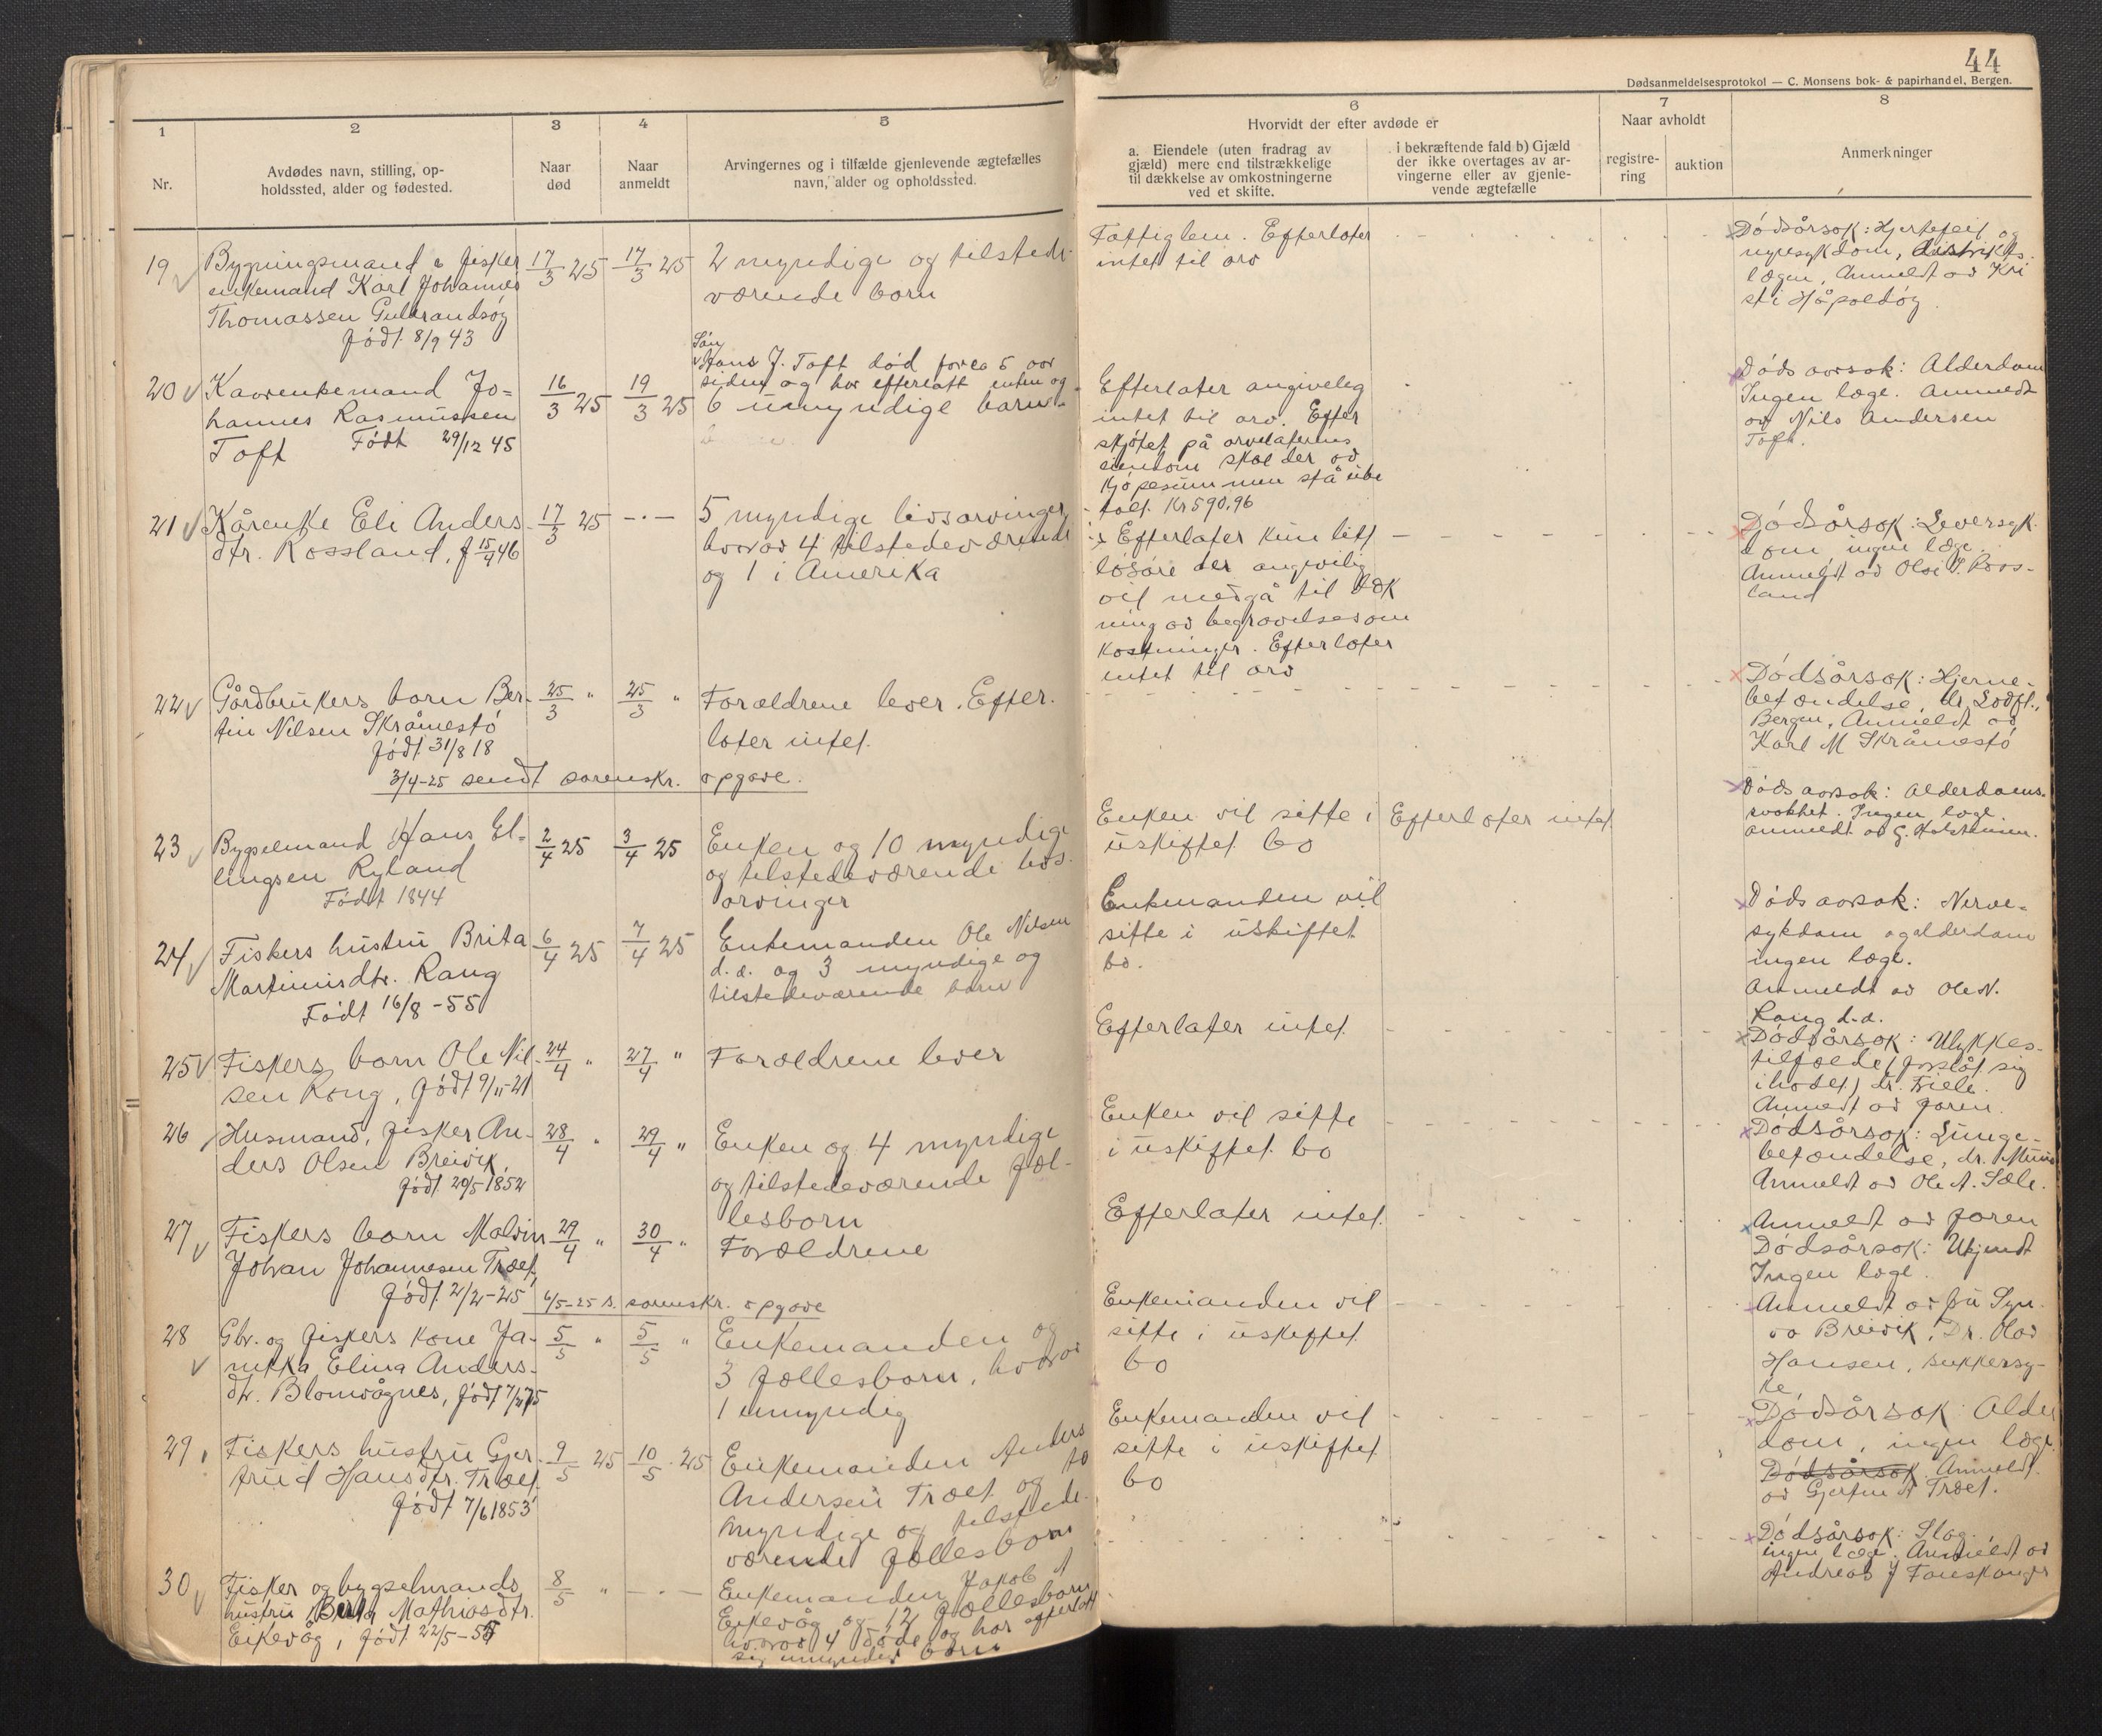 44
Dødsanmeldelsesprotokol — C. Monsens bok- & papirhandel, Bergen.
1
2
3
4
5
6
7
8
Nr.
Avdødes navn, stilling, op-
holdssted, alder og fødested.
Naar
død
Naar
anmeldt
Arvingernes og i tilfælde gjenlevende ægtefælles
navn, alder og opholdssted.
Hvorvidt der efter avdøde er
a. Eiendele (uten fradrag av
gjæld) mere end tilstrækkelige
til dækkelse av omkostningerne
ved et skifte.
i bekræftende fald b) Gjæld
der ikke overtages av ar-
vingerne eller av gjenle-
vende ægtefælle
Naar avholdt
registre-
ring
auktion
Anmerkninger
19
Bygningsmand & fisker
enkemand Karl Johannes
Thomassen Gullrandsøy
født 8/9 43
17/3 25
17/3 25
2 myndige og tilstede-
værende born
Fattiglem. Efterlater
intet til arv
Dødsårsak: Hjertefeil og
nyresykdom, distrikts-
lægen, Anmeldt av Kri
sti Håpoldøy
20
Kaarenkemand Jo-
hannes Rasmussen
Toft Født 29/12 45
16/3 25
19/3 25
Søn
Hans J. Toft død for ca 5 aar
siden og har efterlatt enken og
6 umyndige barn
Efterlater angivelig
intet til arv. Efter
skjøtet på arvelaterens
eiendom skal der av
kjøpesummen stå ube
talt Kr 590,96
Døds aarsak: Alderdom
Ingen læge. Anmeldt
av Nils Andersen
Toft.
21
Kårenke Eli Anders
dtr. Rossland, f 15/4 46
17/3 25
— · —
5 myndige livsarvinger
hvorav 4 tilstedeværende
og 1 i Amerika
Efterlater kun litt
løsøre der angivelig
vil medgå til dæk
ning av begravelsesom
kostninger. Efterlater
intet til arv
Dødsårsak: Leversyk-
dom, ingen læge.
Anmeldt av Olai J. Ross-
land
22
Gårdbrukers barn Ber-
tin Nilsen Skråmestø
født 31/8 18
25/3 "
25/3 "
Forældrene lever. Efter-
later intet.
Dødsårsak: Hjerne-
betændelse, dr. Lodft.,
Bergen, Anmeldt av
Karl M Skråmestø
3/4-25 sendt sorenskr. opgave.
23
Bygselmand Hans El-
lingsen Ryland
Født 1844
2/4 25
3/4 25
Enken og 10 myndige
og tilstedeværende livs-
arvinger
Enken vil sitte i
uskiftet bo
Efterlater intet
Døds aarsak: Alderdoms-
svakhet. Ingen læge.
anmeldt av G. Holstmen.
24
Fiskers hustru Brita
Martinusdtr. Rong
Født 16/8 -55
6/4 25
7/4 25
Enkemanden Ole Nilsen
d.a. og 3 myndige og
tilstedeværende barn
Enkemanden vil
sitte i uskiftet
bo.
Døds aarsak: Nerve-
sykdom og alderdom
ingen læge.
Anmeldt av Ole N.
Rong d.a.
25
Fiskers barn Ole Nil-
sen Rong, født 9/11-21
24/4 "
27/4 "
Forældrene lever
Efterlater intet
Dødsårsak: Ulykkes-
tilfælde (forslåt sig
i hodet) dr. Friele.
Anmeldt av faren.
26
Husmand, fisker An-
ders Olsen Breivik,
født 20/5 1852
28/4 "
29/4 "
Enken og 4 myndige
og tilstedeværende fæl-
lesborn
Enken vil sitte
i uskiftet bo
Dødsårsak: Lunge-
betændelse, dr. Mun
Anmeldt av Ole A. Sæle.
27
Fiskers barn Malvin
Johan Johannesen Træet,
født 2/2-25
29/4 "
30/4 "
Forældrene
Efterlater intet.
Anmeldt av faren
Dødsårsak: Ukjendt
Ingen læge.
6/5-25 s. sorenskr. opgave
28
Gbr. og fiskers kone Ja-
nikka Elina Anders-
dtr. Blomvågnes, født 7/2 75
5/5 "
5/5 "
Enkemanden og
3 fællesborn, hvorav
1 umyndig
Enkemanden vil
sitte i uskiftet
bo
Anmeldt av fru Syn-
va Breivik, Dr. Olav
Hansen, sukkersy-
ke
29
Fiskers hustru Gjer-
trud Hansdtr. Træet
født 7/6 1853
9/5 25
10/5 25
Enkemanden Anders
Andersen Træet og to
myndige og tilstede-
værende fællesborn
Enkemanden vil
sitte i uskiftet
bo
Dødsårsak: Alder
dom, ingen læge.
Dødsårsak. Anmeldt
av Gjertin A Træet.
30
Fisker og bygselmands
hustru Berta Mathiasdtr.
Eikevåg, født 22/5-55
8/5 "
— · —
Enkemanden Jakob A
Eikevåg og 12 fællesborn
hvorav 4 døde og har efterlatt
sig umyndige born
Dødsårsak: Slag.
ingen læge. Anmeldt av
Andreas J Fauskanger